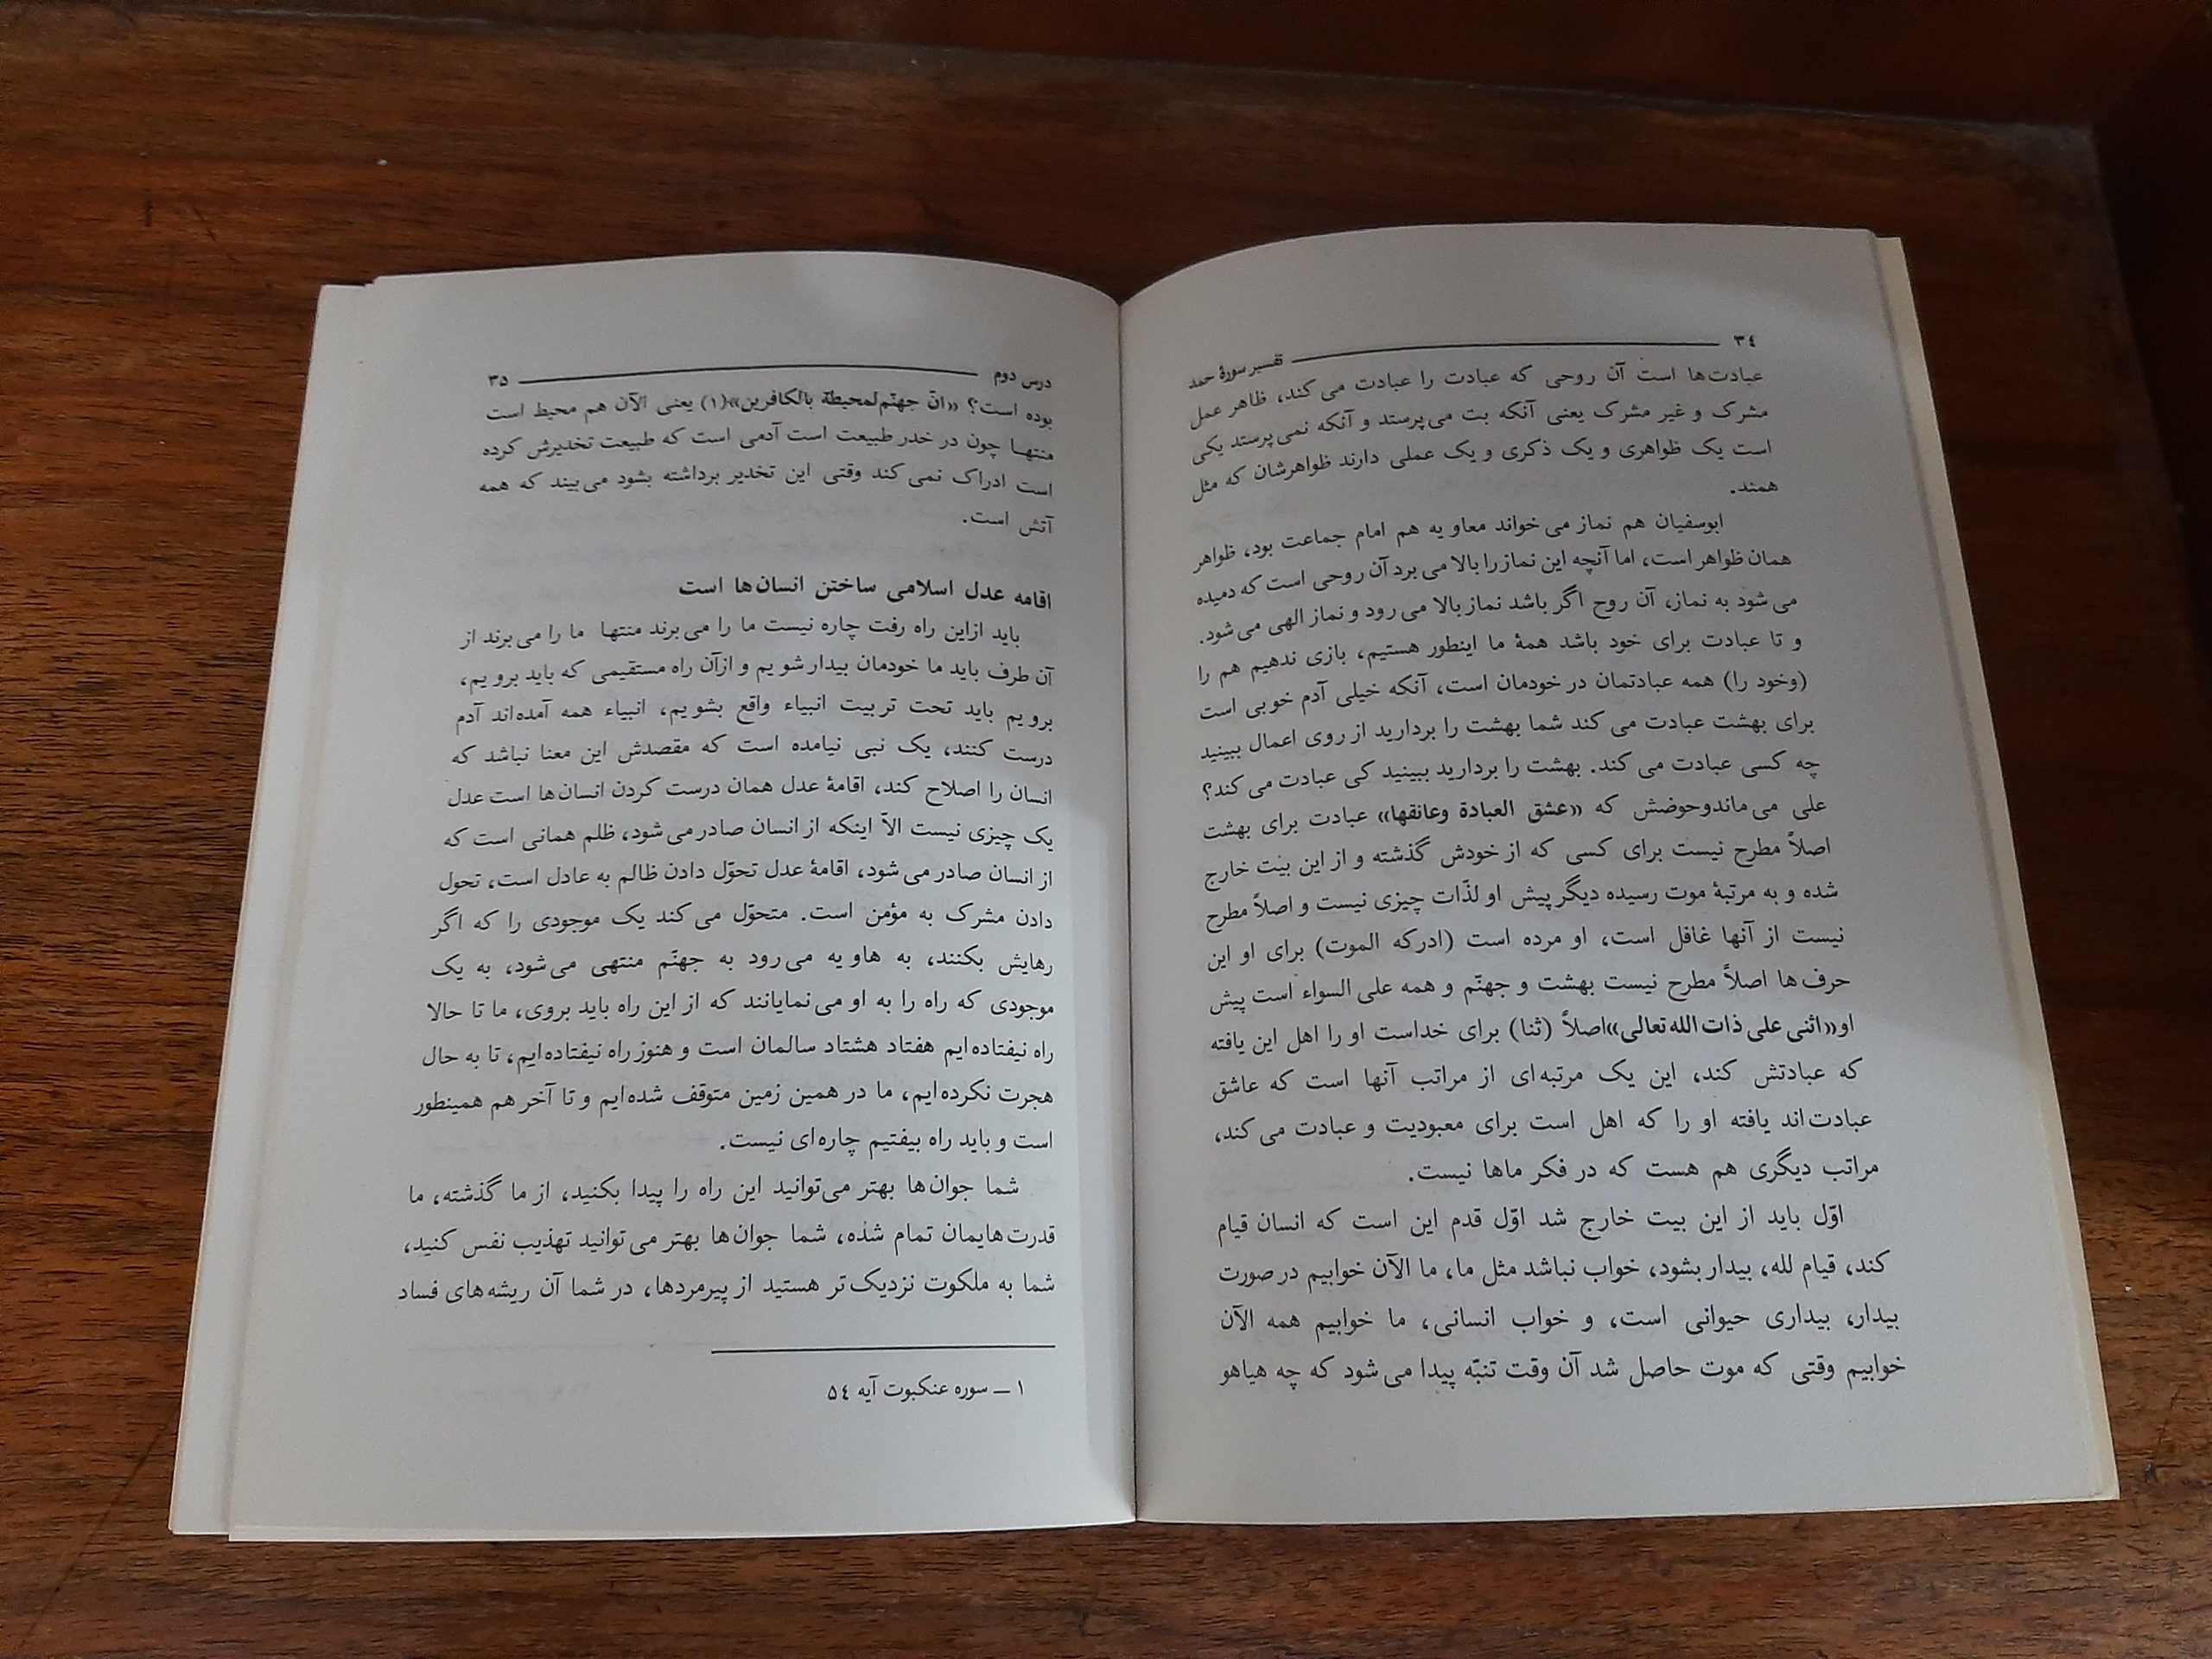 ۳٤ تفسیر سورهٔ حمد
عبادت‌ها است آن روحی که عبادت را عبادت می کند، ظاهر عمل
مشرک و غیر مشرک یعنی آنکه بت می‌پرستد و آنکه نمی‌پرستد یکی
است یک ظواهری و یک ذکری و یک عملی دارند ظواهرشان که مثل
همند.
ابوسفیان هم نماز می خواند معاویه هم امام جماعت بود، ظواهر
همان ظواهر است، اما آنچه این نماز را بالا می برد آن روحی است که دمیده
می شود به نماز، آن روح اگر باشد نماز بالا می رود و نماز الهی می شود.
و تا عبادت برای خود باشد همهٔ ما اینطور هستیم، بازی ندهیم هم را
(وخود را) همه عبادتمان در خودمان است، آنکه خیلی آدم خوبی است
برای بهشت عبادت می کند شما بهشت را بردارید از روی اعمال ببینید
چه کسی عبادت می کند. بهشت را بردارید ببینید کی عبادت می کند؟
علی می ماند و حوضش که «عشق العبادة وعانقها» عبادت برای بهشت
اصلاً مطرح نیست برای کسی که از خودش گذشته و از این بیت خارج
شده و به مرتبهٔ موت رسیده دیگر پیش او لذّات چیزی نیست و اصلاً مطرح
نیست از آنها غافل است، او مرده است (ادرکه الموت) برای او این
حرف‌ها اصلاً مطرح نیست بهشت و جهنّم و همه علی السواء است پیش
او «اثنی علی ذات الله تعالی» اصلاً (ثنا) برای خداست او را اهل این یافته
که عبادتش کند، این یک مرتبه‌ای از مراتب آنها است که عاشق
عبادت‌اند یافته او را که اهل است برای معبودیت و عبادت می کند،
مراتب دیگری هم هست که در فکر ماها نیست.
اوّل باید از این بیت خارج شد اوّل قدم این است که انسان قیام
کند، قیام لله، بیدار بشود، خواب نباشد مثل ما، ما الآن خوابیم در صورت
بیدار، بیداری حیوانی است، و خواب انسانی، ما خوابیم همه الآن
خوابیم وقتی که موت حاصل شد آن وقت تنبّه پیدا می شود که چه هیاهو
درس دوم ۳۵
بوده است؟ «انّ جهنّم لمحیطة بالکافرین»(۱) یعنی الآن هم محیط است
منتهـا چون در خدر طبیعت است آدمی است که طبیعت تخدیرش کرده
است ادراک نمی کند وقتی این تخدیر برداشته بشود می بیند که همه
آتش است.
اقامه عدل اسلامی ساختن انسان‌ها است
باید ازاین راه رفت چاره نیست ما را می برند منتها ما را می برند از
آن طرف باید ما خودمان بیدار شویم و ازآن راه مستقیمی که باید برویم،
برویم باید تحت تربیت انبیاء واقع بشویم، انبیاء همه آمده‌اند آدم
درست کنند، یک نبی نیامده است که مقصدش این معنا نباشد که
انسان را اصلاح کند، اقامهٔ عدل همان درست کردن انسان‌ها است عدل
یک چیزی نیست الاّ اینکه از انسان صادر می شود، ظلم همانی است که
از انسان صادر می شود، اقامهٔ عدل تحوّل دادن ظالم به عادل است، تحول
دادن مشرک به مؤمن است. متحوّل می کند یک موجودی را که اگر
رهایش بکنند، به هاویه می رود به جهنّم منتهی می شود، به یک
موجودی که راه را به او می نمایانند که از این راه باید بروی، ما تا حالا
راه نیفتاده‌ایم هفتاد هشتاد سالمان است و هنوز راه نیفتاده‌ایم، تا به حال
هجرت نکرده‌ایم، ما در همین زمین متوقف شده‌ایم و تا آخر هم همینطور
است و باید راه بیفتیم چاره‌ای نیست.
شما جوان‌ها بهتر می توانید این راه را پیدا بکنید، از ما گذشته، ما
قدرت‌هایمان تمام شده، شما جوان‌ها بهتر می توانید تهذیب نفس کنید،
شما به ملکوت نزدیک تر هستید از پیرمردها، در شما آن ریشه‌های فساد
۱ ــ سوره عنکبوت آیه ۵٤